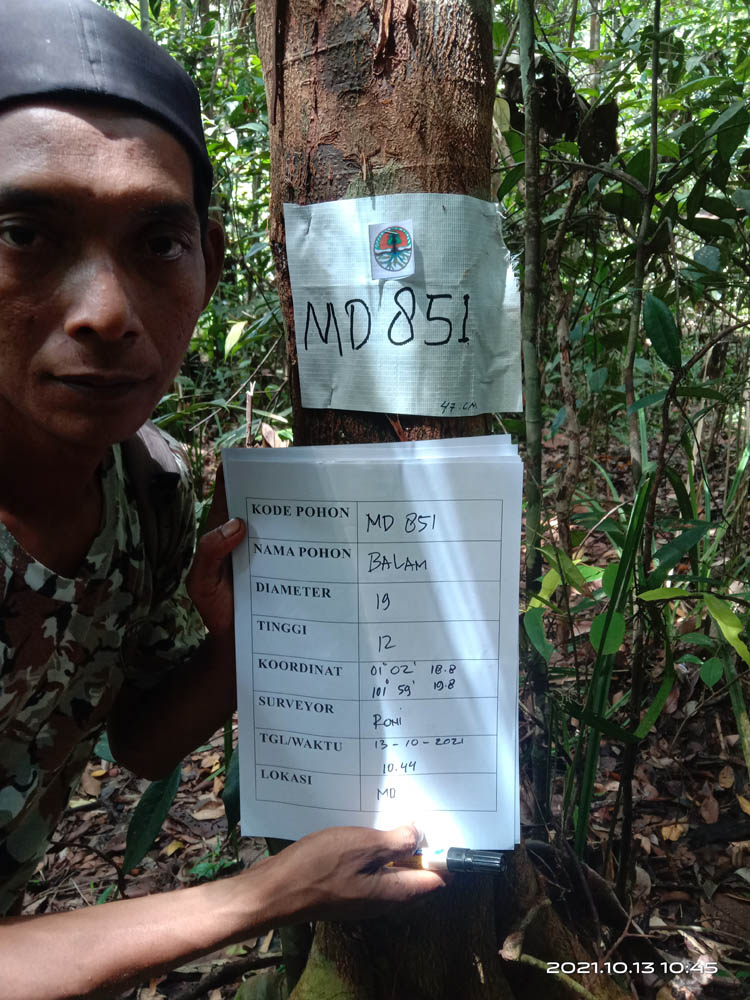 MD 851
47.CM
KODE POHON MD 851
NAMA POHON BALAM
DIAMETER 19
TINGGI 12
KOORDINAT 01° 02' 18.8
101° 59' 19.8
SURVEYOR RONI
TGL/WAKTU 13-10-2021
10.44
LOKASI MD
2021.10.13 10:45